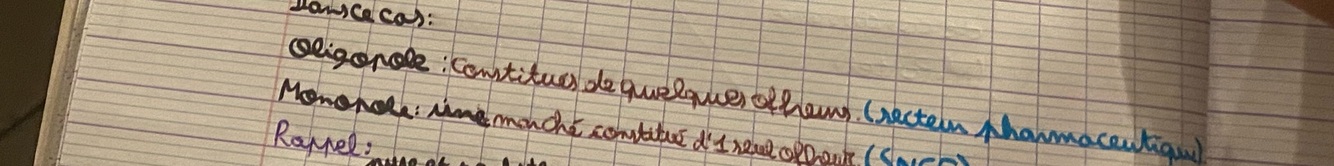 Dans ce cas:
Oligopole : constitués de quelques offreurs. (secteur pharmaceutique)
Monopole : Une marché constitué d'1 seul offreur (SNCF)
Rappel :